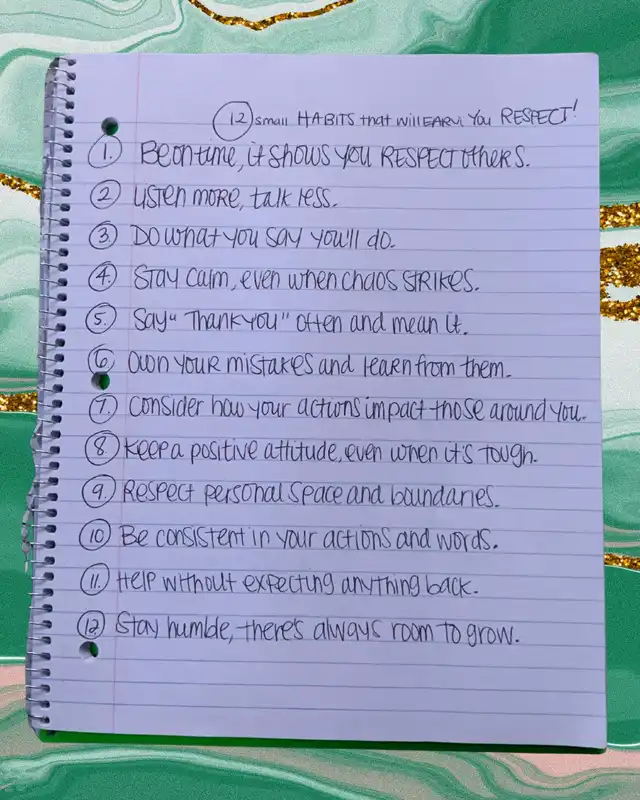 12 small HABITS that will EARN You RESPECT!
1. Be on time, it shows you RESPECT others.
2 Listen more, talk less.
3 Do what you say you'll do.
4. Stay calm, even when chaos STRIKES.
5. Say "Thank you" often and mean it.
6. own your mistakes and learn from them.
7. Consider how your actions impact those around you.
8 Keep a positive attitude, even when it's tough.
9. Respect personal space and boundaries.
10 Be consistent in your actions and words.
11. Help without expecting anything back.
12 Stay humble, there's always room to grow.